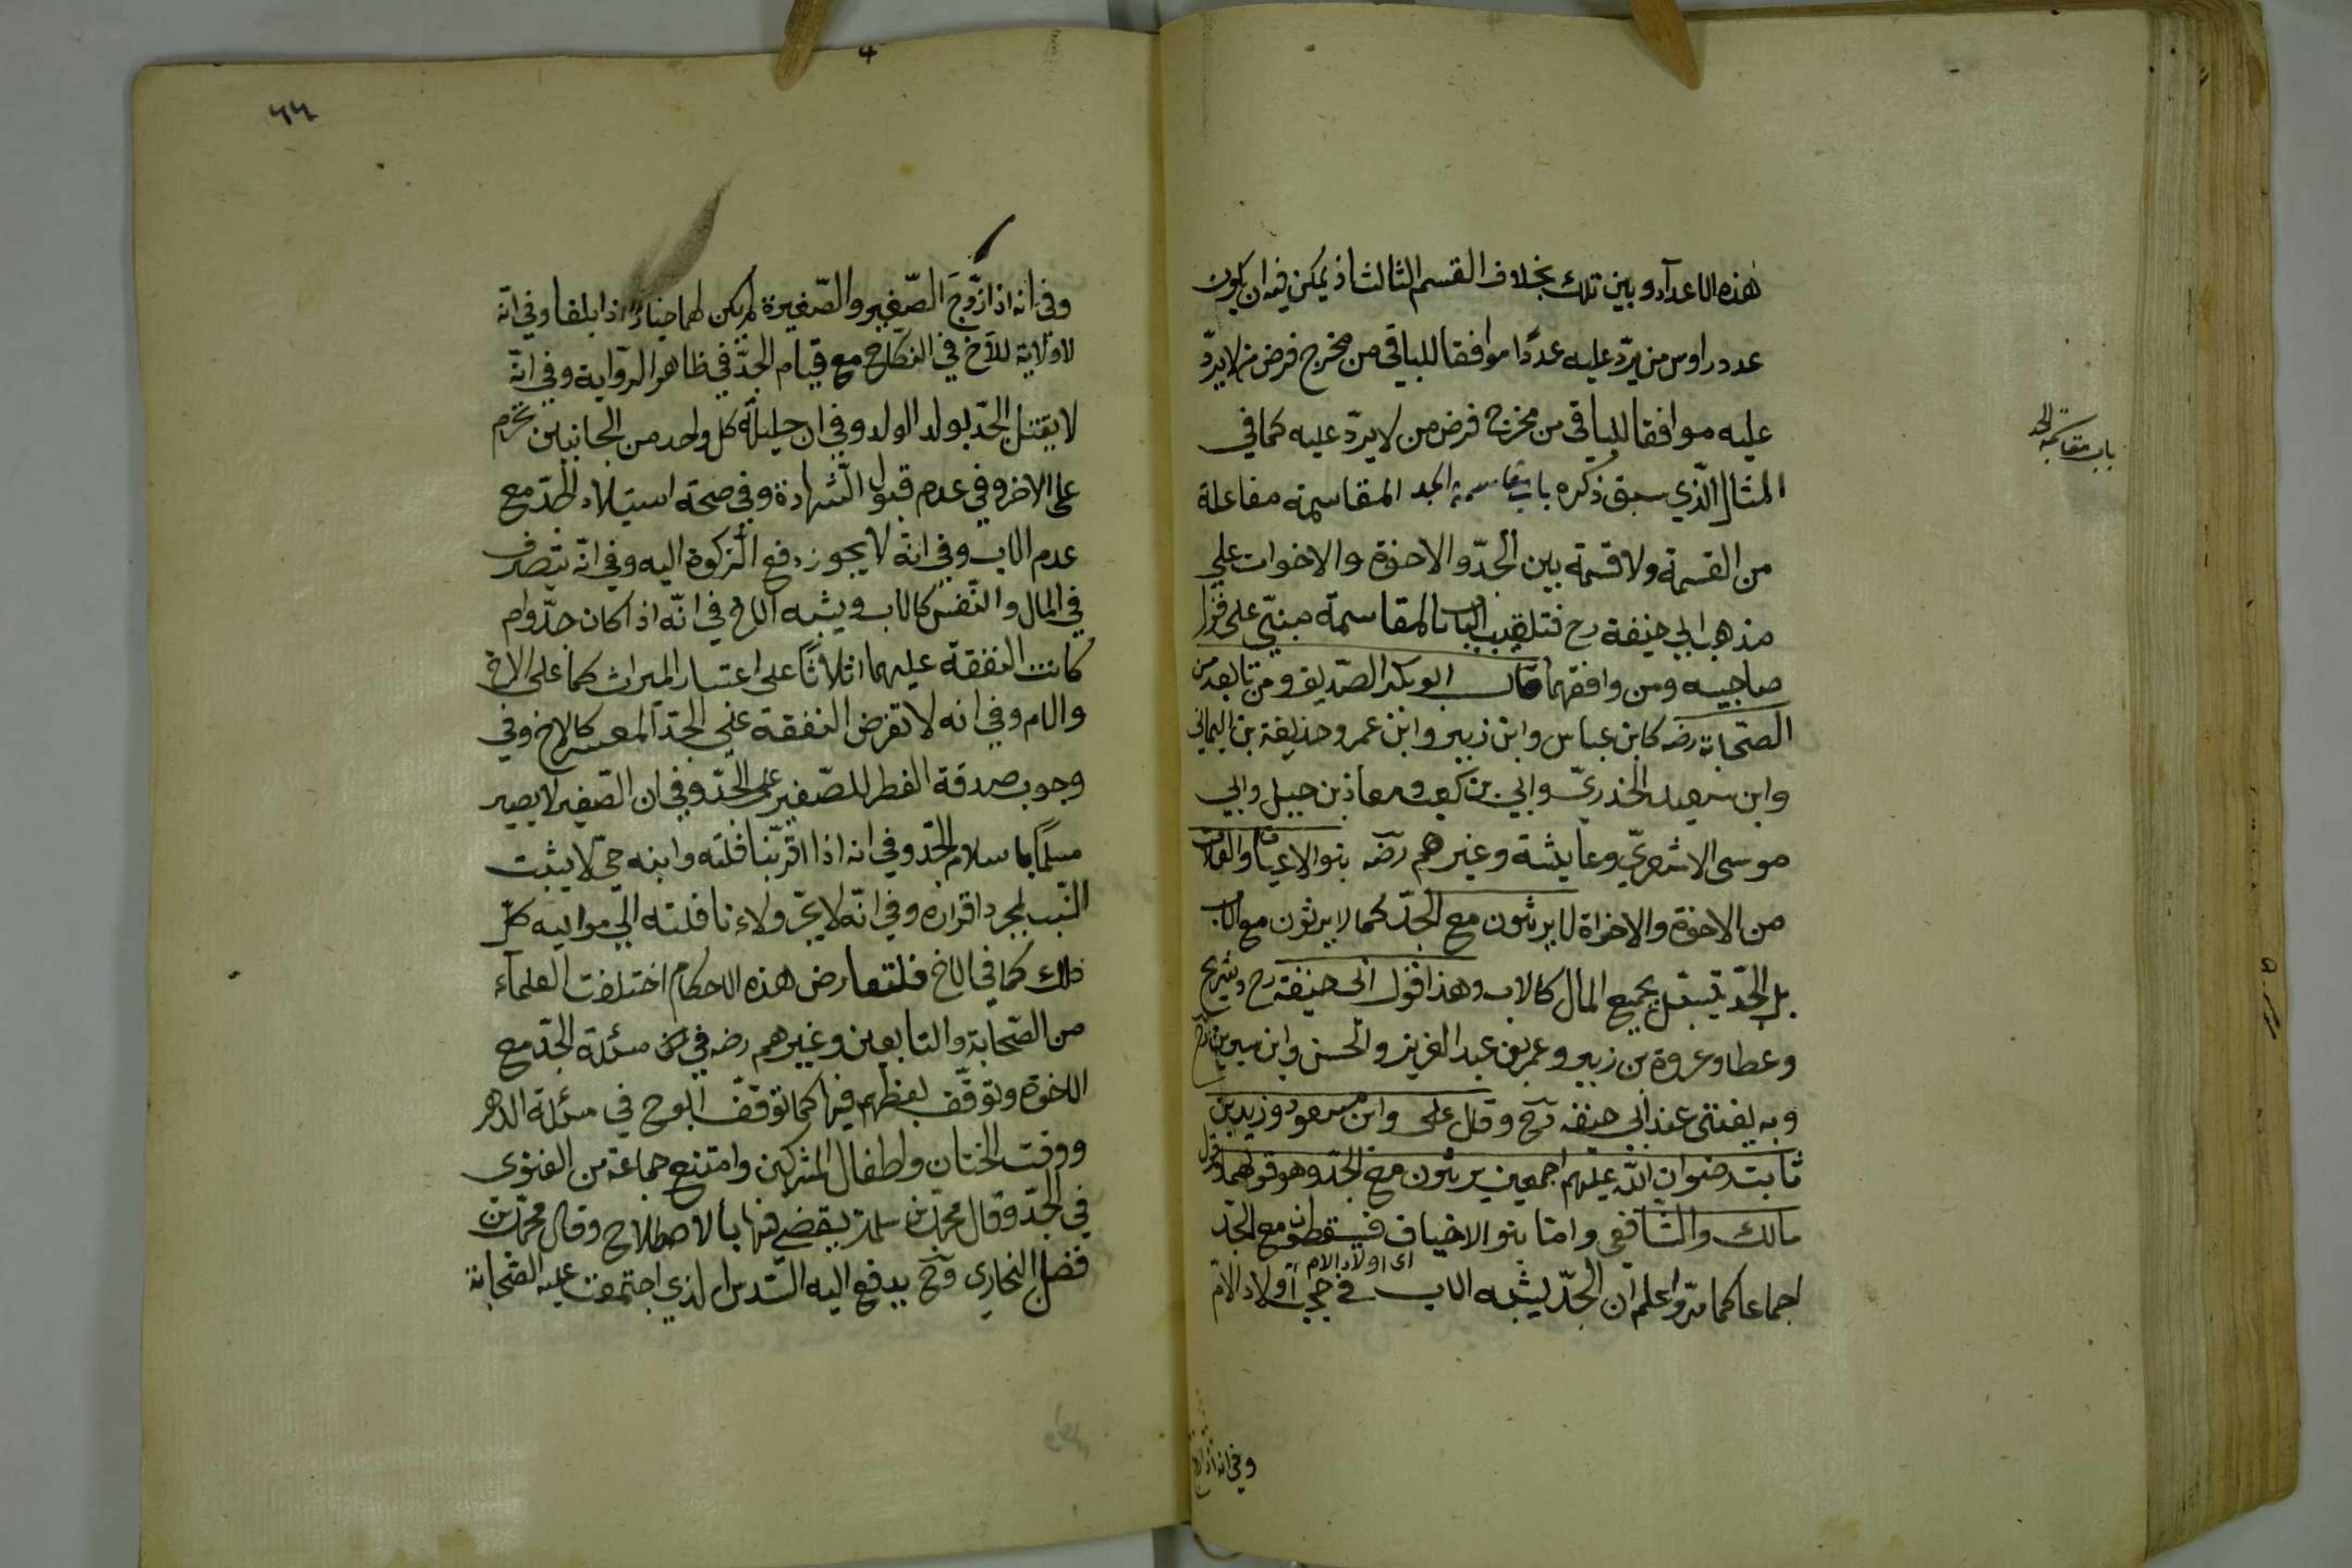 هذه الاعداد وبين تلك بخلاف القسم الثالث اذ يمكن فيه ان يكون
عدد راوس من يردّ عليه عددًا موافقا للباقي من مخرج فرض من لا يردّ
عليه موافقا للباقي من مخرج فرض من لا يردّ عليه كما في
المثال الّذي سبق ذكره باب مقاسمة الجد المقاسمة مفاعلة
من القسمة ولا قسمة بين الجدّ والاخوة والاخوات على
مذهب ابي حنيفة رح فتلقيب الباب بالمقاسمة مبنيّ على قول
صاحبيه ومن وافقهما قال ابو بكر الصّديق ومن تابعه من
الصّحابة رضه كابن عباس وابن زبير وابن عمر وحذيفة بن اليماني
وابن سعيد الخذريّ وابي بن كعب ومعاذ بن جبل وابي
موسى الاشعريّ وعايشة وغيرهم رضه بنوا الاعيان والعلات
من الاخوة والاخواة لا يرثون مع الجدّ كما لا يرثون مع الاب
بل الجدّ يستقل بجميع المال كالاب وهذا قول ابى حنيفة رح وشريح
وعطا وعروة بن زبير وعمر بن عبد العزيز والحسن وابن سيرين
وبه يفتى عند أبى حنيفه رح وقال على وابن مسعود وزيد بن
ثابت رضوان الله عليهم اجمعين يرثون مع الجدّ وهو قولهما وقول
مالك والشافعى وامّا بنو الاخياف فيسقطون مع الجدّ
اى اولاد الام
اجماعا كما مرّ واعلم ان الجدّ يشبه الاب في حجب اولاد الامّ
وفى انه اذا زوج
باب مقاسمة الجد
٦٦
وفى انه اذا زوّجَ الصّغير والصّغيرة لم يكن لهما خيار اذا بلغا وفي انّه
لا ولاية للأخ في النكاح مع قيام الجدّ في ظاهر الرّواية وفي انّه
لا يقتل الجدّ بولد الولد وفي ان حليلة كل واحد من الجانبين تحرم
على الاخر وفي عدم قبول الشهادة وفي صحة استيلاد الجدّ مع
عدم الاب وفي انّه لا يجوز دفع الزكوة اليه وفي انّه يتصرف
في المال والنّفس كالاب ويشبه الاخ في انّه اذا كان جدّ وام
كانت النفقة عليهما اثلاثًا على اعتبار الميراث كما على الاخ
والام وفي انه لا تفرض النفقة على الجدّ المعسر كالاخ وفي
وجوب صدقة الفطر للصّغير على الجدّ وفي ان الصّغير لا يصير
مسلمًا باسلام الجدّ وفي انه اذا اقرّ بنافلته وابنه حيّ لا يثبت
النّسب بمجرد اقراره وفي انّه لا يجرّ ولاء نافلته الى مواليه كلّ
ذلك كما في الاخ فلتعارض هذه الاحكام اختلفت العلمآء
من الصّحابة والتابعين وغيرهم رضه في مسئلة الجدّ مع
الاخوة وتوقّف بعضهم فيها كما توقّف ابوح في مسئلة الدهر
ووقت الختان واطفال المشركين وامتنع جماعة من الفتوى
في الجدّ وقال محمّد بن سلمة يقضى فيها بالاصطلاح وقال محمّد بن
فضل البخارى رح يدفع اليه السّدس الذي اجتمعت عليه الصّحابة